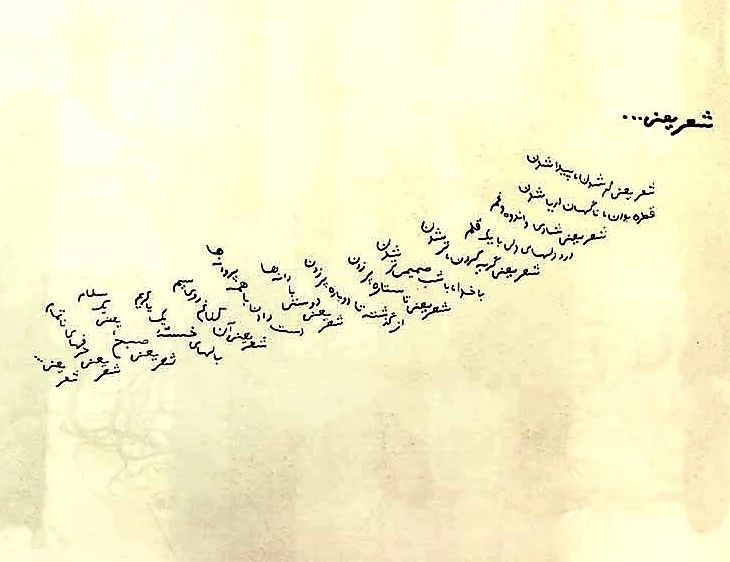 شعر یعنی...
شعر یعنی گم شدن، پیدا شدن
قطره بودن، ناگهان دریا شدن
شعر یعنی شادی و اندوه و غم
درد دلهای دل با یک قلم
شعر یعنی گریه کردن، تر شدن
با خدا، با شب صمیمی تر شدن
شعر یعنی تا ستاره پر زدن
از گذشته تا دوباره پر زدن
شعر یعنی دوستی با دارها
دست دادن با همه پروازها
شعر یعنی آن کلاغ روی سیم
بالهای خسته یک یاکریم
شعر یعنی صبح، یعنی یک سلام
شعر یعنی حرفهای ناتمام
شعر یعنی...